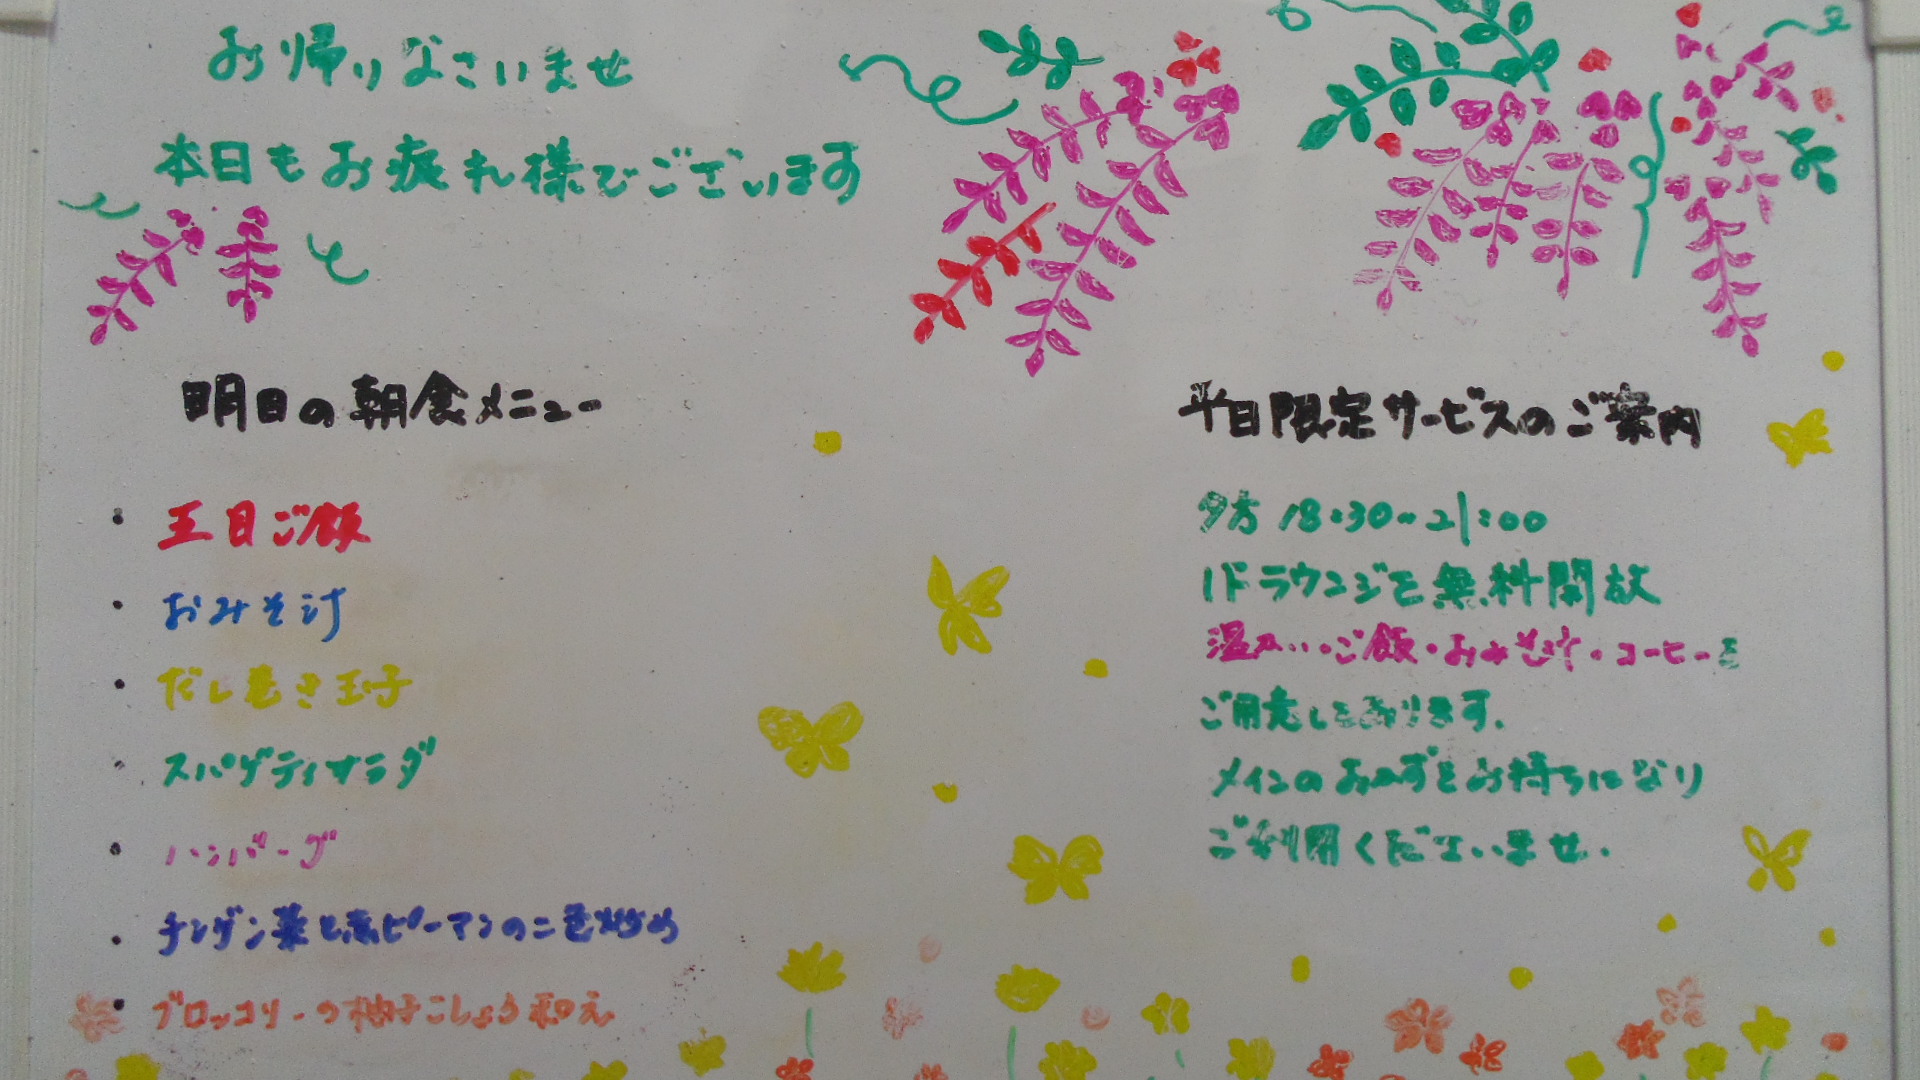 お帰りなさいませ
本日もお疲れ様でございます
明日の朝食メニュー
・五目ご飯
・おみそ汁
・だし巻き玉子
・スパゲティサラダ
・ハンバーグ
・チンゲン菜と赤ピーマンの二色炒め
・ブロッコリーの柚子こしょう和え
平日限定サービスのご案内
夕方18:30~21:00
1Fラウンジを無料開放
温かいご飯・おみそ汁・コーヒーを
ご用意しております。
メインのおかずをお持ちになり
ご利用くださいませ。